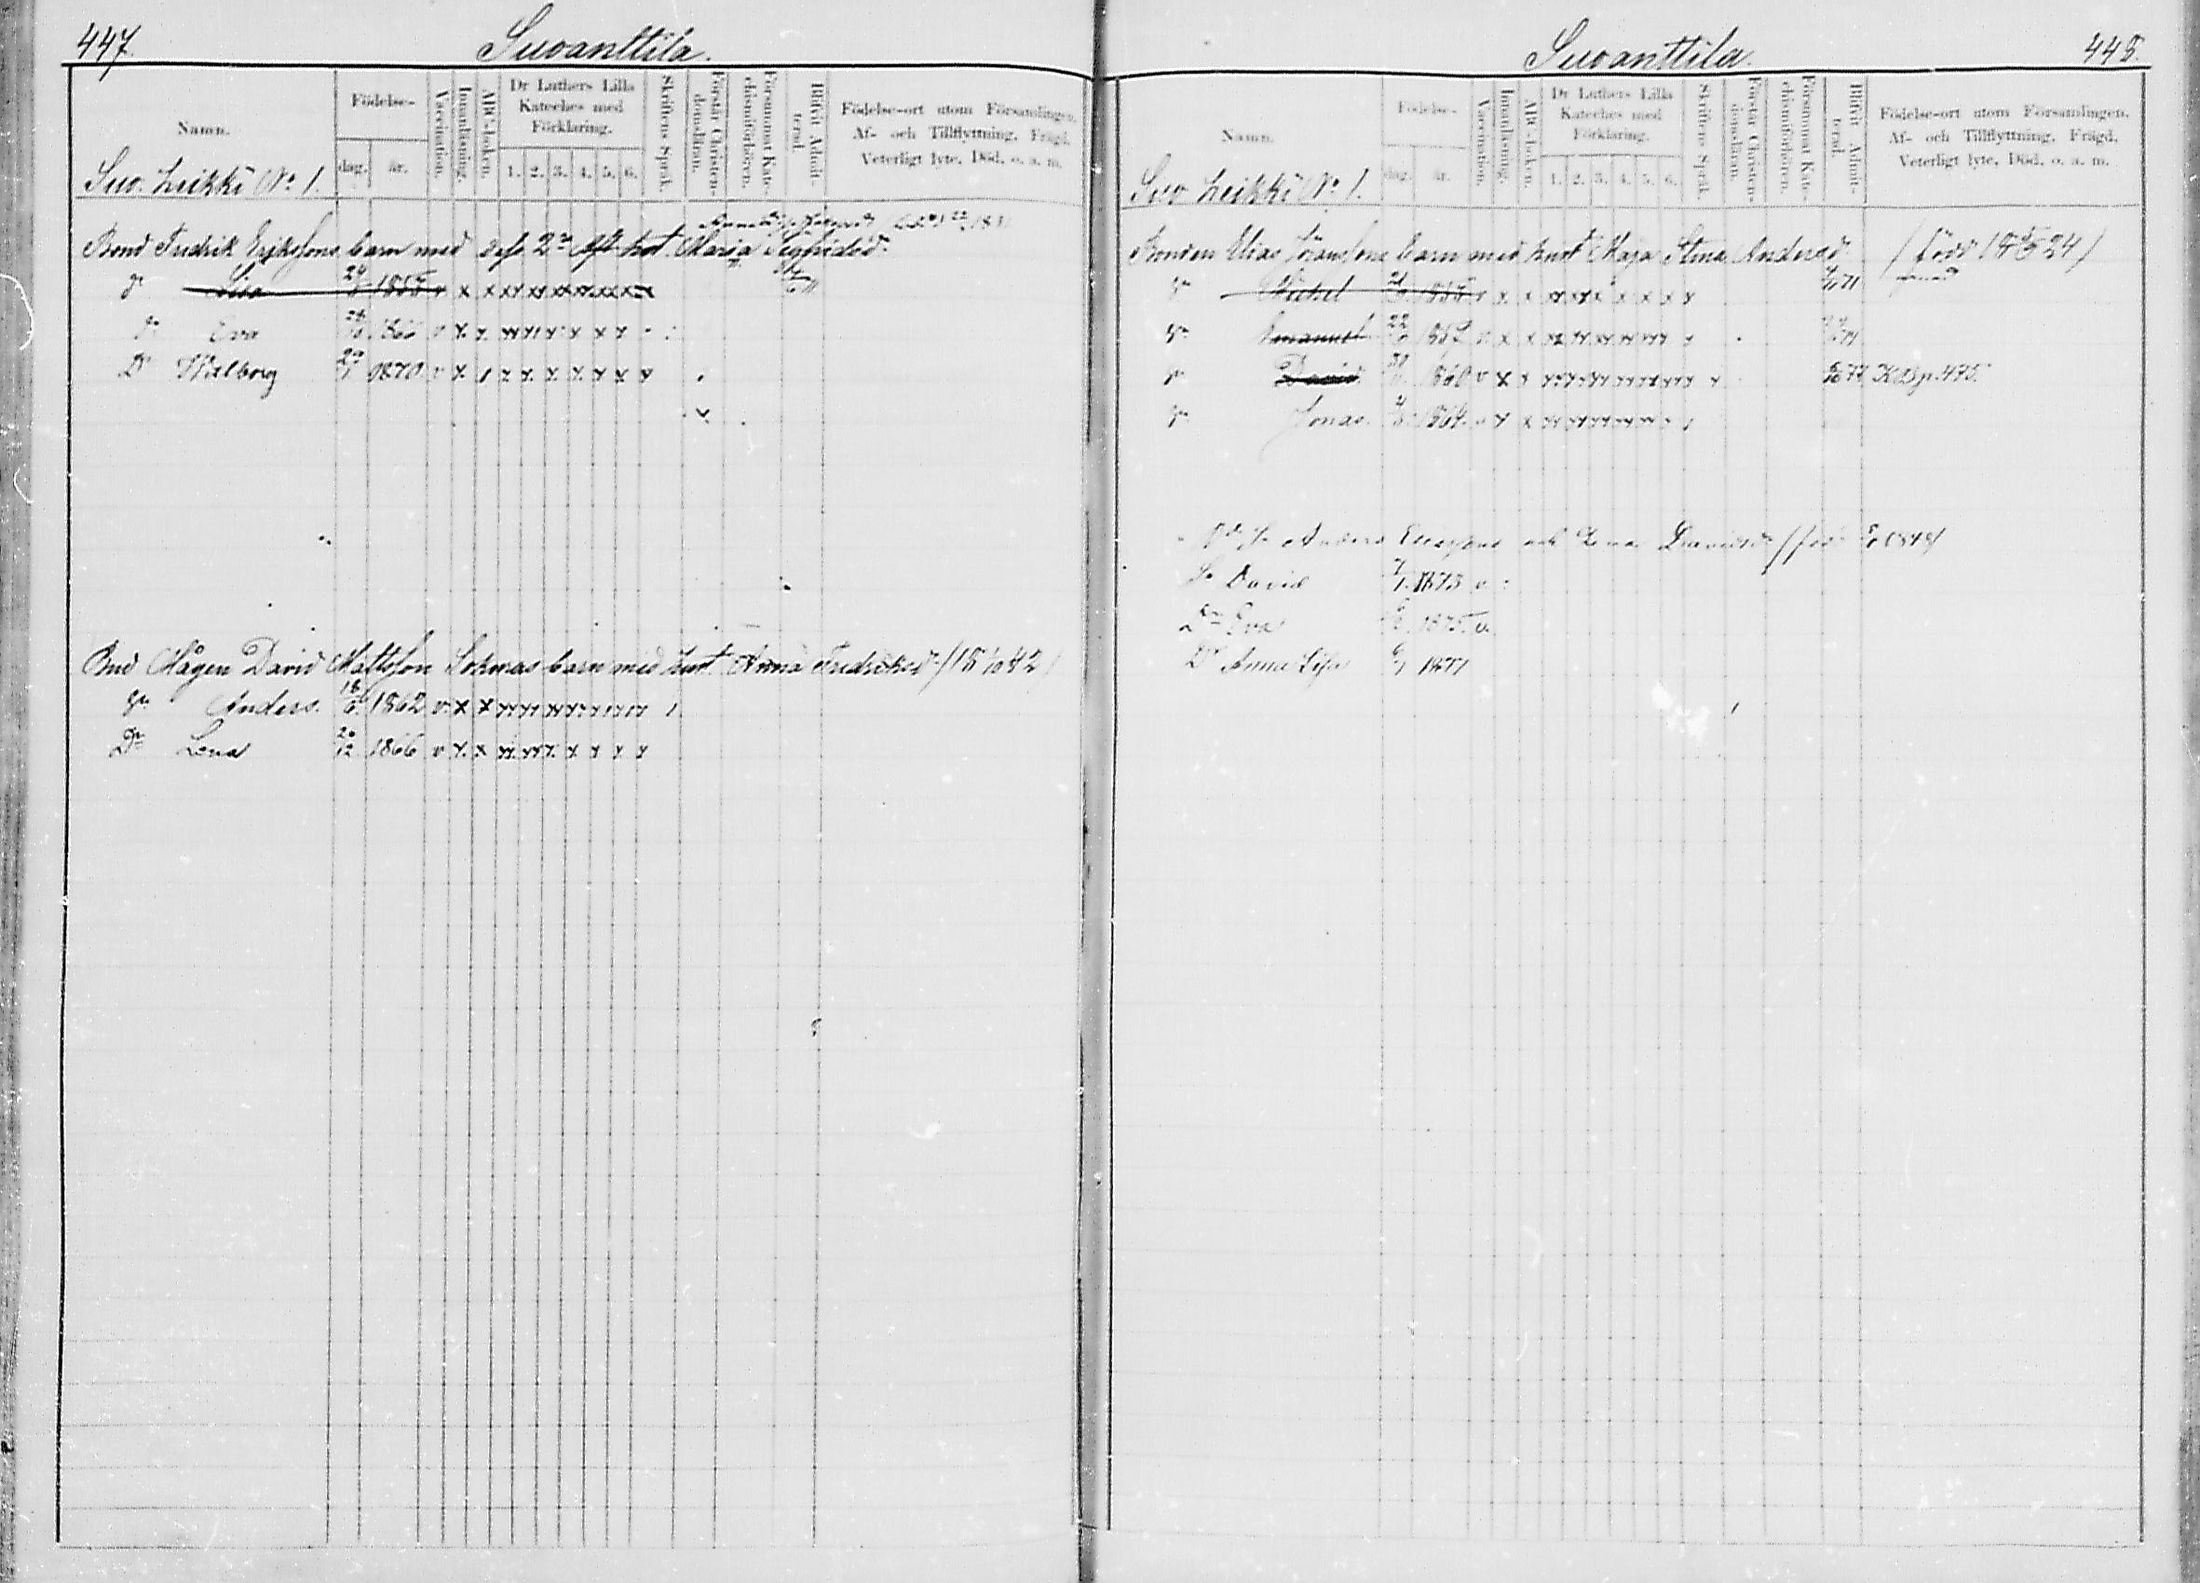 447.
Suvanttila.
Namn.
Födelse-
dag.
år.
Vaccination.
Innanläsning.
ABC-boken.
Dr Luthers Lilla
Kateches med
Förklaring.
1. 2. 3. 4. 5. 6.
Skriftens Språk.
Förstår Christen-
domsläran.
Försummat Kate-
chismiförhören.
Blifvit Admit-
terad.
Födelse-ort utom Församlingen.
Af- och Tillflyttning. Frägd.
Veterligt lyte. Död. o. a. m.
Suv. Heikki No 1.
Bond Fredrik Erikssons barn med dess 2dra hust. Maria Sigfridsd:
Lisa 24 1855 v x x
Eva 1866 v x x
Dr Walborg 1870 v x
Bnd Mågen David Mattsson Sormas barn med hust. Anna Fredriksd. (18 42)
Sn Anders. 18 1862 v x x
Dr Lena 20/12 1866 v x x
Suvanttila.
448.
Namn.
Födelse-
dag.
år.
Vaccination.
Innanläsning.
ABC-boken.
Dr Luthers Lilla
Kateches med
Förklaring.
1. 2. 3. 4. 5. 6.
Skriftens Språk.
Förstår Christen-
domsläran.
Försummat Kate-
chismiförhören.
Blifvit Admit-
terad.
Födelse-ort utom Församlingen.
Af- och Tillflyttning. Frägd.
Veterligt lyte. Död. o. a. m.
Suv Heikki No 1.
Bonden Elias Göranssons barn med hust Maja Stina Andersd. (född 18 24)
Sn Michel 1855 v x x 71
Sn Emanuel 22 1857 v x x
Sn David 1860 v x 77 KB p. 475.
Sn Jonas 1864 x x
Anders och Lena Davidsd (föd 1848)
Sn David 1873 v
Dr Eva 1875 v.
Dr Anna Lisa 1877